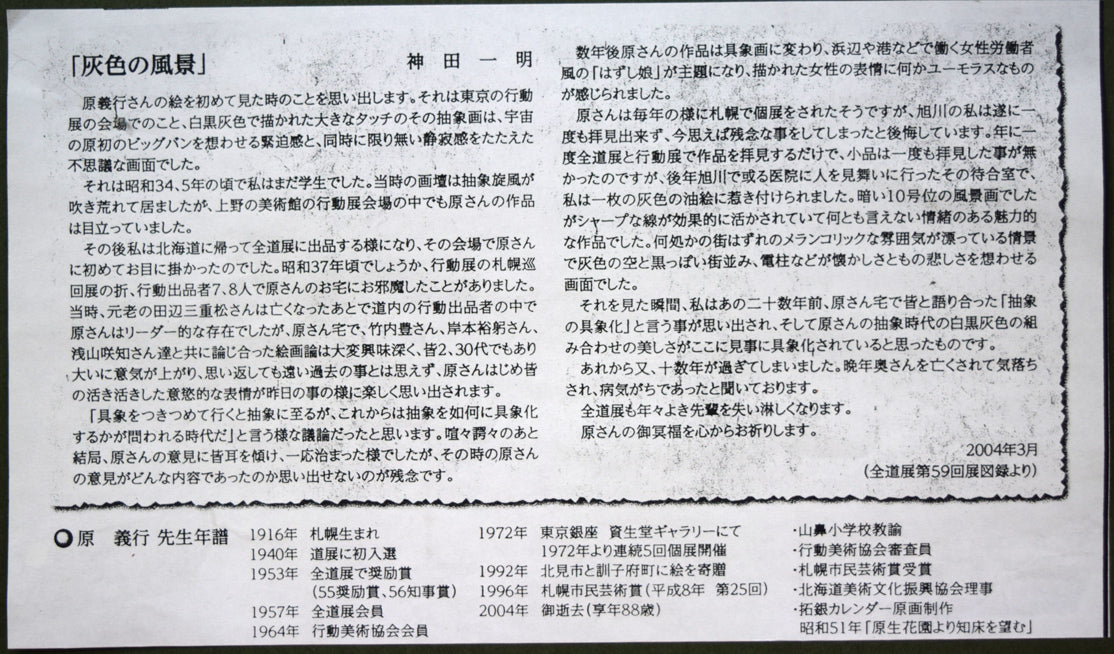 「灰色の風景」 神田一明
原義行さんの絵を初めて見た時のことを思い出します。それは東京の行動
展の会場でのこと、白黒灰色で描かれた大きなタッチのその抽象画は、宇宙
の原初のビッグバンを想わせる緊迫感と、同時に限り無い静寂感をたたえた
不思議な画面でした。
それは昭和34、5年の頃で私はまだ学生でした。当時の画壇は抽象旋風が
吹き荒れて居ましたが、上野の美術館の行動展会場の中でも原さんの作品
は目立っていました。
その後私は北海道に帰って全道展に出品する様になり、その会場で原さん
に初めてお目に掛かったのでした。昭和37年頃でしょうか、行動展の札幌巡
回展の折、行動出品者7、8人で原さんのお宅にお邪魔したことがありました。
当時、元老の田辺三重松さんは亡くなったあとで道内の行動出品者の中で
原さんはリーダー的な存在でしたが、原さん宅で、竹内豊さん、岸本裕躬さん、
浅山咲知さん達と共に論じ合った絵画論は大変興味深く、皆2、30代でもあり
大いに意気が上がり、思い返しても遠い過去の事とは思えず、原さんはじめ皆
の活き活きした意慾的な表情が昨日の事の様に楽しく思い出されます。
「具象をつきつめて行くと抽象に至るが、これからは抽象を如何に具象化
するかが問われる時代だ」と言う様な議論だったと思います。喧々諤々のあと
結局、原さんの意見に皆耳を傾け、一応治まった様でしたが、その時の原さん
の意見がどんな内容であったのか思い出せないのが残念です。
数年後原さんの作品は具象画に変わり、浜辺や港などで働く女性労働者
風の「はずし娘」が主題になり、描かれた女性の表情に何かユーモラスなもの
が感じられました。
原さんは毎年の様に札幌で個展をされたそうですが、旭川の私は遂に一
度も拝見出来ず、今思えば残念な事をしてしまったと後悔しています。年に一
度全道展と行動展で作品を拝見するだけで、小品は一度も拝見した事が無
かったのですが、後年旭川で或る医院に人を見舞いに行ったその待合室で、
私は一枚の灰色の油絵に惹き付けられました。暗い10号位の風景画でした
がシャープな線が効果的に活かされていて何とも言えない情緒のある魅力的
な作品でした。何処かの街はずれのメランコリックな雰囲気が漂っている情景
で灰色の空と黒っぽい街並み、電柱などが懐かしさともの悲しさを想わせる
画面でした。
それを見た瞬間、私はあの二十数年前、原さん宅で皆と語り合った「抽象
の具象化」と言う事が思い出され、そして原さんの抽象時代の白黒灰色の組
み合わせの美しさがここに見事に具象化されていると思ったものです。
あれから又、十数年が過ぎてしまいました。晩年奥さんを亡くされて気落ち
され、病気がちであったと聞いております。
全道展も年々よき先輩を失い淋しくなります。
原さんの御冥福を心からお祈りします。
2004年3月
(全道展第59回展図録より)
原 義行 先生年譜
1916年 札幌生まれ
1940年 道展に初入選
1953年 全道展で奨励賞
(55奨励賞、56知事賞)
1957年 全道展会員
1964年 行動美術協会会員
1972年 東京銀座 資生堂ギャラリーにて
1972年より連続5回個展開催
1992年 北見市と訓子府町に絵を寄贈
1996年 札幌市民芸術賞(平成8年 第25回)
2004年 御逝去(享年88歳)
・山鼻小学校教諭
・行動美術協会審査員
・札幌市民芸術賞受賞
・北海道美術文化振興協会理事
・拓銀カレンダー原画制作
昭和51年「原生花園より知床を望む」